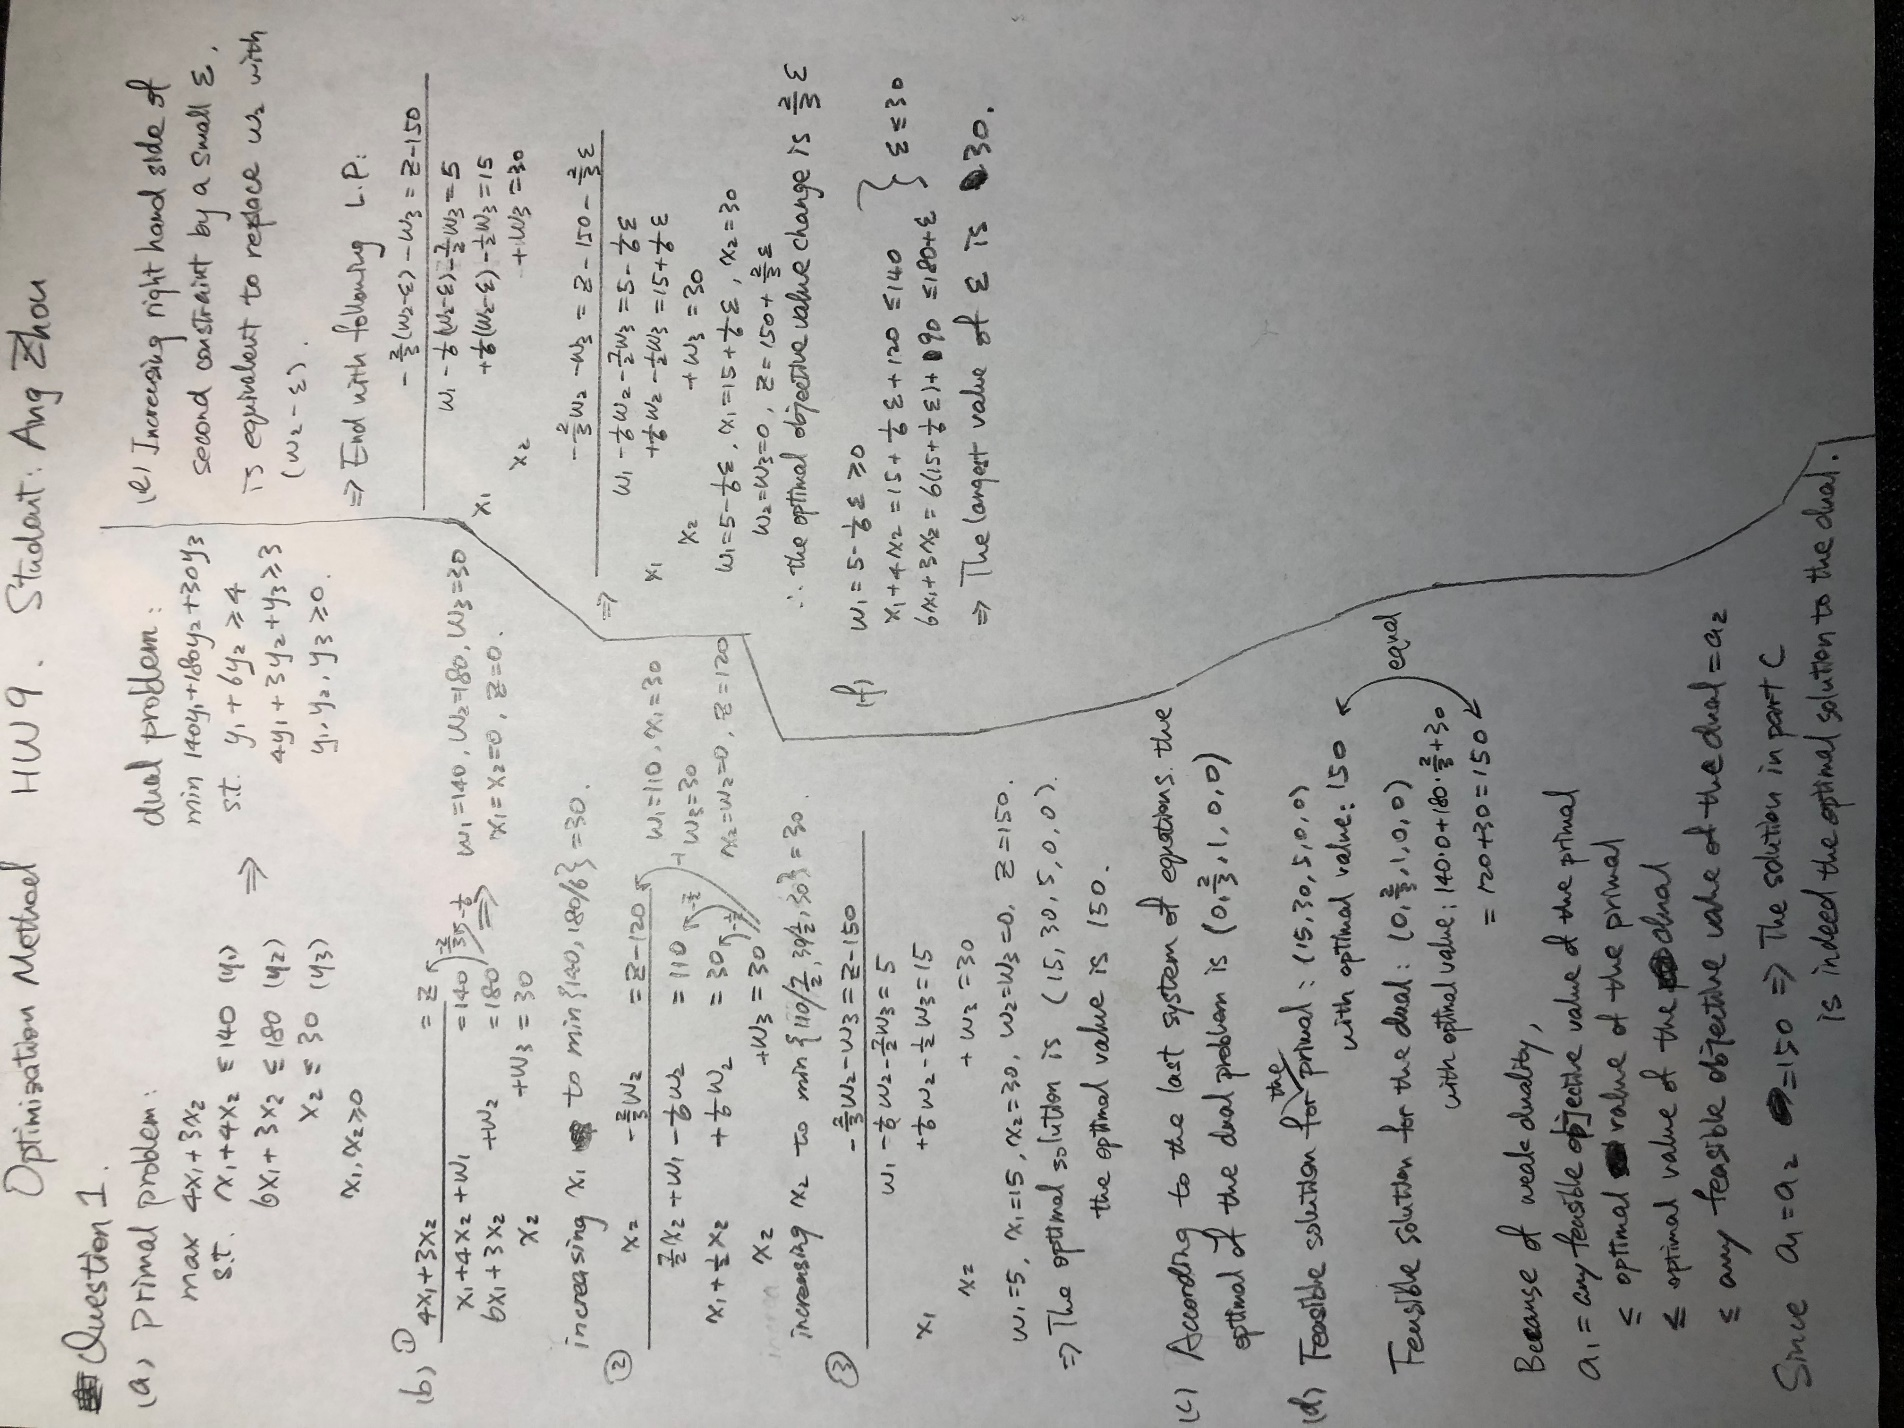 Optimization Method HW9. Student: Ang Zhou
Question 1.
(a) Primal problem:
max 4x₁+3x₂
s.t. x₁+4x₂ ≤ 140 (y₁)
6x₁+3x₂ ≤ 180 (y₂)
x₂ ≤ 30 (y₃)
x₁, x₂ ≥ 0
⇒
dual problem:
min 140y₁+180y₂+30y₃
s.t. y₁+6y₂ ≥ 4
4y₁+3y₂+y₃ ≥ 3
y₁, y₂, y₃ ≥ 0.
(b) ① 4x₁+3x₂ = z
x₁+4x₂+w₁ = 140
6x₁+3x₂ +w₂ = 180
x₂ +w₃ = 30
⇒
w₁=140, w₂=180, w₃=30
x₁=x₂=0, z=0.
increasing x₁ to min{140, 180/6}=30.
② x₂ -⅔w₂ = z-120
7/2 x₂+w₁-⅙w₂ = 110
x₁+½x₂ +⅙w₂ = 30
x₂ +w₃ = 30
w₁=110, x₁=30
w₃=30
x₂=w₂=0, z=120
increasing x₂ to min{110/7/2, 30/½, 30}=30.
③ -⅔w₂-w₃ = z-150
w₁-⅙w₂-7/2 w₃ = 5
x₁ +⅙w₂-½w₃ = 15
x₂ +w₃ = 30
w₁=5, x₁=15, x₂=30, w₂=w₃=0, z=150.
⇒ The optimal solution is (15, 30, 5, 0, 0).
the optimal value is 150.
(c) According to the last system of equations. the
optimal of the dual problem is (0, ⅔, 1, 0, 0)
(d) Feasible solution for the primal: (15, 30, 5, 0, 0)
with optimal value: 150
Feasible solution for the dual: (0, ⅔, 1, 0, 0)
with optimal value: 140·0+180·⅔+30
= 120+30=150
equal
Because of weak duality,
a₁ = any feasible objective value of the primal
≤ optimal value of the primal
≤ optimal value of the dual
≤ any feasible objective value of the dual = a₂
Since a₁=a₂=150 ⇒ The solution in part C
is indeed the optimal solution to the dual.
(e) Increasing right hand side of
second constraint by a small ε,
is equivalent to replace w₂ with
(w₂-ε).
⇒ End with following L.P:
-⅔(w₂-ε)-w₃ = z-150
w₁-⅙(w₂-ε)-7/2 w₃=5
x₁ +⅙(w₂-ε)-½w₃=15
x₂ +w₃=30
⇒ -⅔w₂-w₃ = z-150-⅔ε
w₁-⅙w₂-7/2 w₃=5-⅙ε
x₁ +⅙w₂-½w₃=15+⅙ε
x₂ +w₃=30
w₁=5-⅙ε, x₁=15+⅙ε, x₂=30
w₂=w₃=0, z=150+⅔ε
∴ the optimal objective value change is ⅔ε
(f) w₁=5-⅙ε ≥0
x₁+4x₂=15+⅙ε+120 ≤140
6x₁+3x₂=6(15+⅙ε)+90 ≤180+ε
} ε≤30
⇒ The largest value of ε is 30.